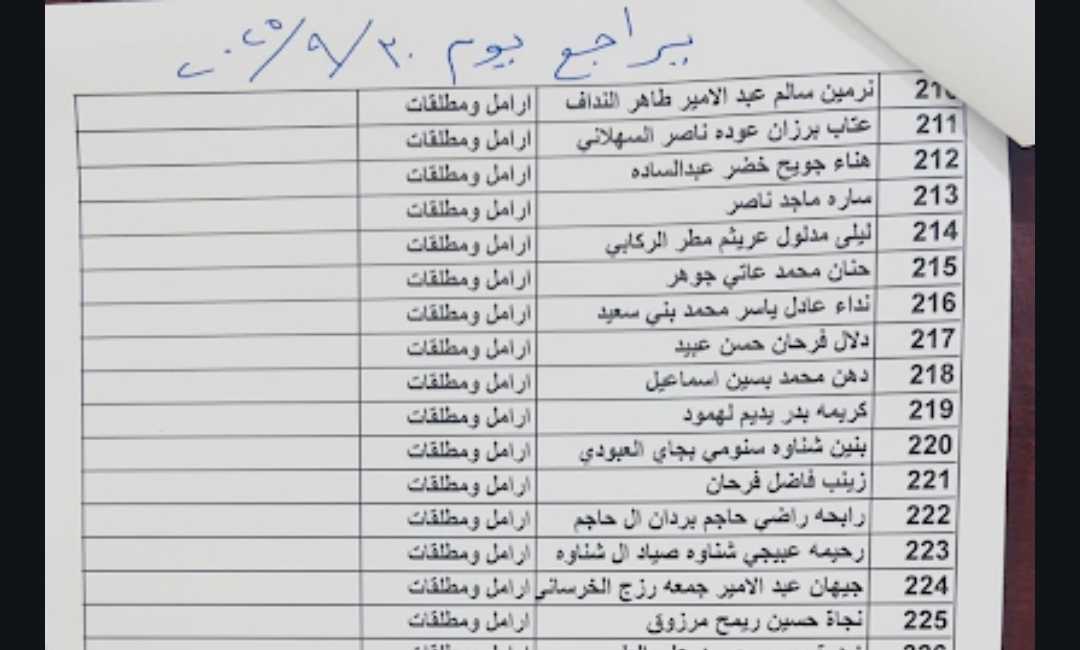 يراجع يوم ٣٠/٩/٢٠٢٥
210 نرمين سالم عبد الامير طاهر النداف ارامل ومطلقات
211 عتاب برزان عوده ناصر السهلاني ارامل ومطلقات
212 هناء جويح خضر عبدالساده ارامل ومطلقات
213 ساره ماجد ناصر ارامل ومطلقات
214 ليلى مدلول عريثم مطر الركابي ارامل ومطلقات
215 حنان محمد عاتي جوهر ارامل ومطلقات
216 نداء عادل ياسر محمد بني سعيد ارامل ومطلقات
217 دلال فرحان حسن عبيد ارامل ومطلقات
218 دهن محمد بسين اسماعيل ارامل ومطلقات
219 كريمه بدر يديم لهمود ارامل ومطلقات
220 بنين شناوه سنومي بجاي العبودي ارامل ومطلقات
221 زينب فاضل فرحان ارامل ومطلقات
222 رابحه راضي حاجم بردان ال حاجم ارامل ومطلقات
223 رحيمه عبيجي شناوه صياد ال شناوه ارامل ومطلقات
224 جيهان عبد الامير جمعه رزج الخرساني ارامل ومطلقات
225 نجاة حسين ريمح مرزوق ارامل ومطلقات